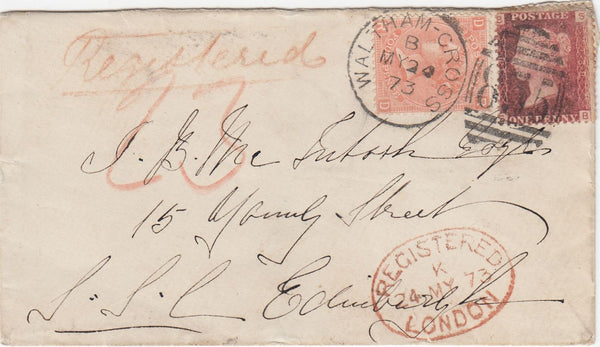 Registered
WALTHAM-CROSS
B
MY 24
73
D
D
POSTAGE
ONE PENNY
S
B
J. B. Mc Intosh Esqre
15 Street
S.S.C Edinburgh
REGISTERED
K
24 MY 73
LONDON